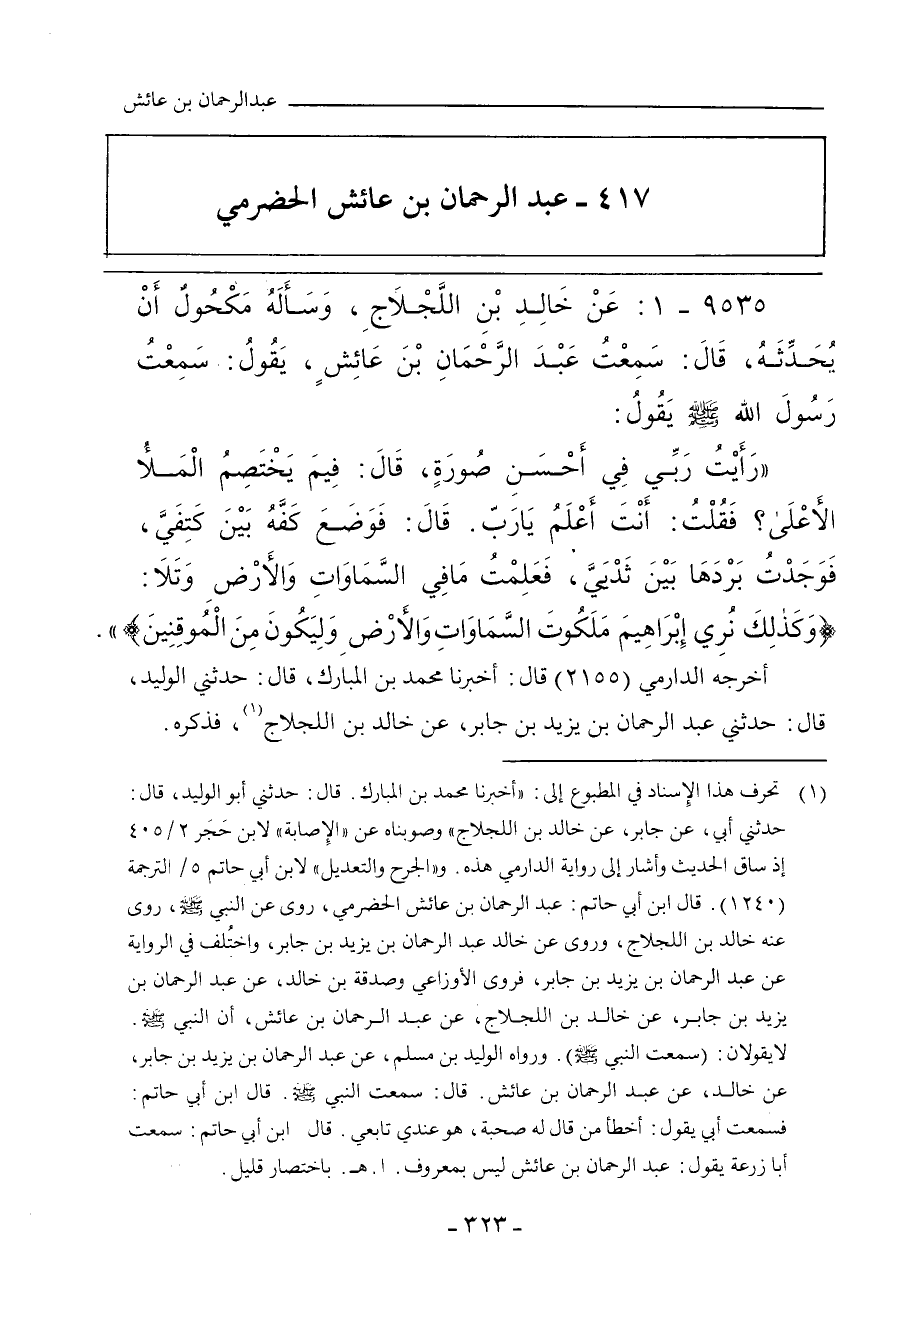 عبدالرحمان بن عائش
٤١٧ - عبد الرحمان بن عائش الحضرمي
٩٥٣٥ - ١: عَنْ خَالِدِ بْنِ اللَّجْلَاجِ، وَسَأَلَهُ مَكْحُولٌ أَنْ
يُحَدِّثَهُ، قَالَ: سَمِعْتُ عَبْدَ الرَّحْمَانِ بْنَ عَائِشٍ، يَقُولُ: سَمِعْتُ
رَسُولَ الله ﷺ يَقُولُ:
«رَأَيْتُ رَبِّي فِي أَحْسَنِ صُورَةٍ، قَالَ: فِيمَ يَخْتَصِمُ الْمَلَأُ
الأَعْلَىٰ؟ فَقُلْتُ: أَنْتَ أَعْلَمُ يَارَبِّ. قَالَ: فَوَضَعَ كَفَّهُ بَيْنَ كَتِفَيَّ،
فَوَجَدْتُ بَرْدَهَا بَيْنَ ثَدْيَيَّ، فَعَلِمْتُ مَافِي السَّمَاوَاتِ وَالأَرْضِ وَتَلَا:
﴿وَكَذٰلِكَ نُرِي إِبْرَاهِيمَ مَلَكُوتَ السَّمَاوَاتِ وَالأَرْضِ وَلِيَكُونَ مِنَ الْمُوقِنِينَ﴾».
أخرجه الدارمي (٢١٥٥) قال: أخبرنا محمد بن المبارك، قال: حدثني الوليد،
قال: حدثني عبد الرحمان بن يزيد بن جابر، عن خالد بن اللجلاج(١)، فذكره.
(١) تحرف هذا الإسناد في المطبوع إلى: «أخبرنا محمد بن المبارك. قال: حدثني أبو الوليد، قال:
حدثني أبي، عن جابر، عن خالد بن اللجلاج» وصوبناه عن «الإصابة» لابن حَجَر ٤٠٥/٢
إذ ساق الحديث وأشار إلى رواية الدارمي هذه. و«الجرح والتعديل» لابن أبي حاتم ٥/ الترجمة
(١٢٤٠). قال ابن أبي حاتم: عبد الرحمان بن عائش الحضرمي، روى عن النبي ﷺ، روى
عنه خالد بن اللجلاج، وروى عن خالد عبد الرحمان بن يزيد بن جابر، واختُلف في الرواية
عن عبد الرحمان بن يزيد بن جابر، فروى الأوزاعي وصدقة بن خالد، عن عبد الرحمان بن
يزيد بن جابر، عن خالد بن اللجلاج، عن عبد الرحمان بن عائش، أن النبي ﷺ.
لايقولان: (سمعت النبي ﷺ). ورواه الوليد بن مسلم، عن عبد الرحمان بن يزيد بن جابر،
عن خالد، عن عبد الرحمان بن عائش. قال: سمعت النبي ﷺ. قال ابن أبي حاتم:
فسمعت أبي يقول: أخطأ من قال له صحبة، هو عندي تابعي. قال ابن أبي حاتم: سمعت
أبا زرعة يقول: عبد الرحمان بن عائش ليس بمعروف. ا. هـ. باختصار قليل.
- ٣٢٣ -